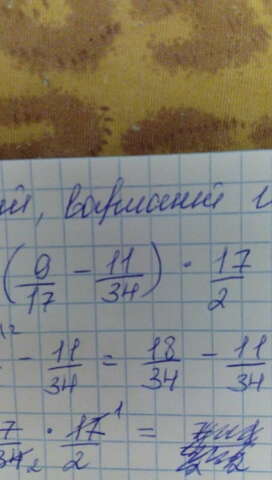 ий, вариант 1
(9/17 - 11/34) · 17/2
- 11/34 = 18/34 - 11/34
7/34 2 · 17 1/2 =